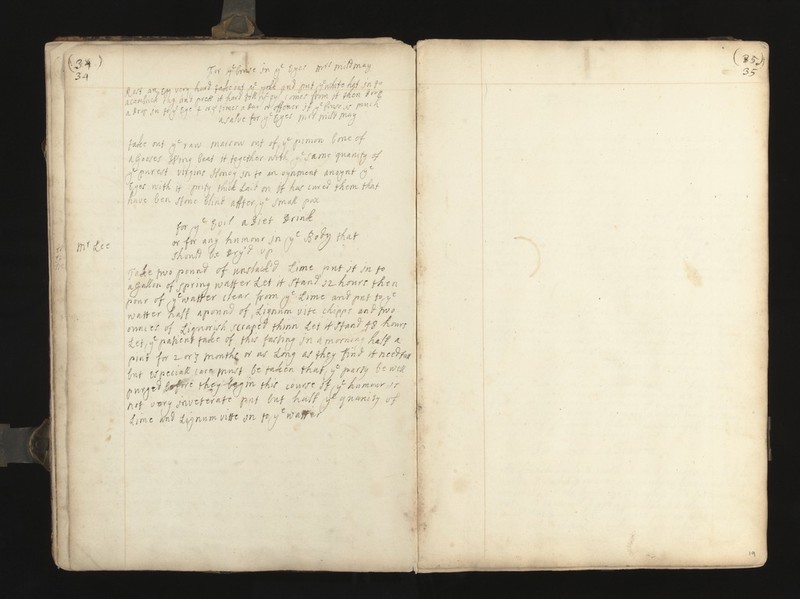 (34)
34
For A bruse in yᵉ Eyes Mrs Mildmay
Rost an Egg very hard take out yᵉ yolk and put yᵉ white hot in to
a cambrick rag and press it hard till yᵉ oyl comes from it then drop
a drop in to yᵉ Eye 2 or 3 times a day or oftner if yᵉ bruse is much
a salve for yᵉ Eyes Mrs Mildmay
take out yᵉ raw marrow out of yᵉ pinion bone of
a Gooses Wing beat it together with yᵉ same quanity of
yᵉ purest virgins Honey in to an oyntment anoynt yᵉ
Eyes with it prity thick Laid on It has cured them that
have ben stone blind affter yᵉ small pox
for yᵉ Evil a Diet Drink
or for any humour in yᵉ Body that
should be Dry'd up
Mʳ Lee
Take two pound of unslack'd Lime put it in to
a gallon of spring watter Let it stand 12 hours then
pour of yᵉ watter clear from yᵉ Lime and put to yᵉ
watter half a pound of Lignum vite chipps and two
ounces of Liquorish scraped thinn Let it stand 48 hours
Let yᵉ patient take of this fasting in a morning half a
pint for 2 or 3 months or as Long as they find it needful
but especiall care must be taken that yᵉ party be well
purged before they begin this course If yᵉ humour is
not very inveterate put but half yᵉ quanity of
Lime and Lignum vitte in to yᵉ watter
(35)
35
19